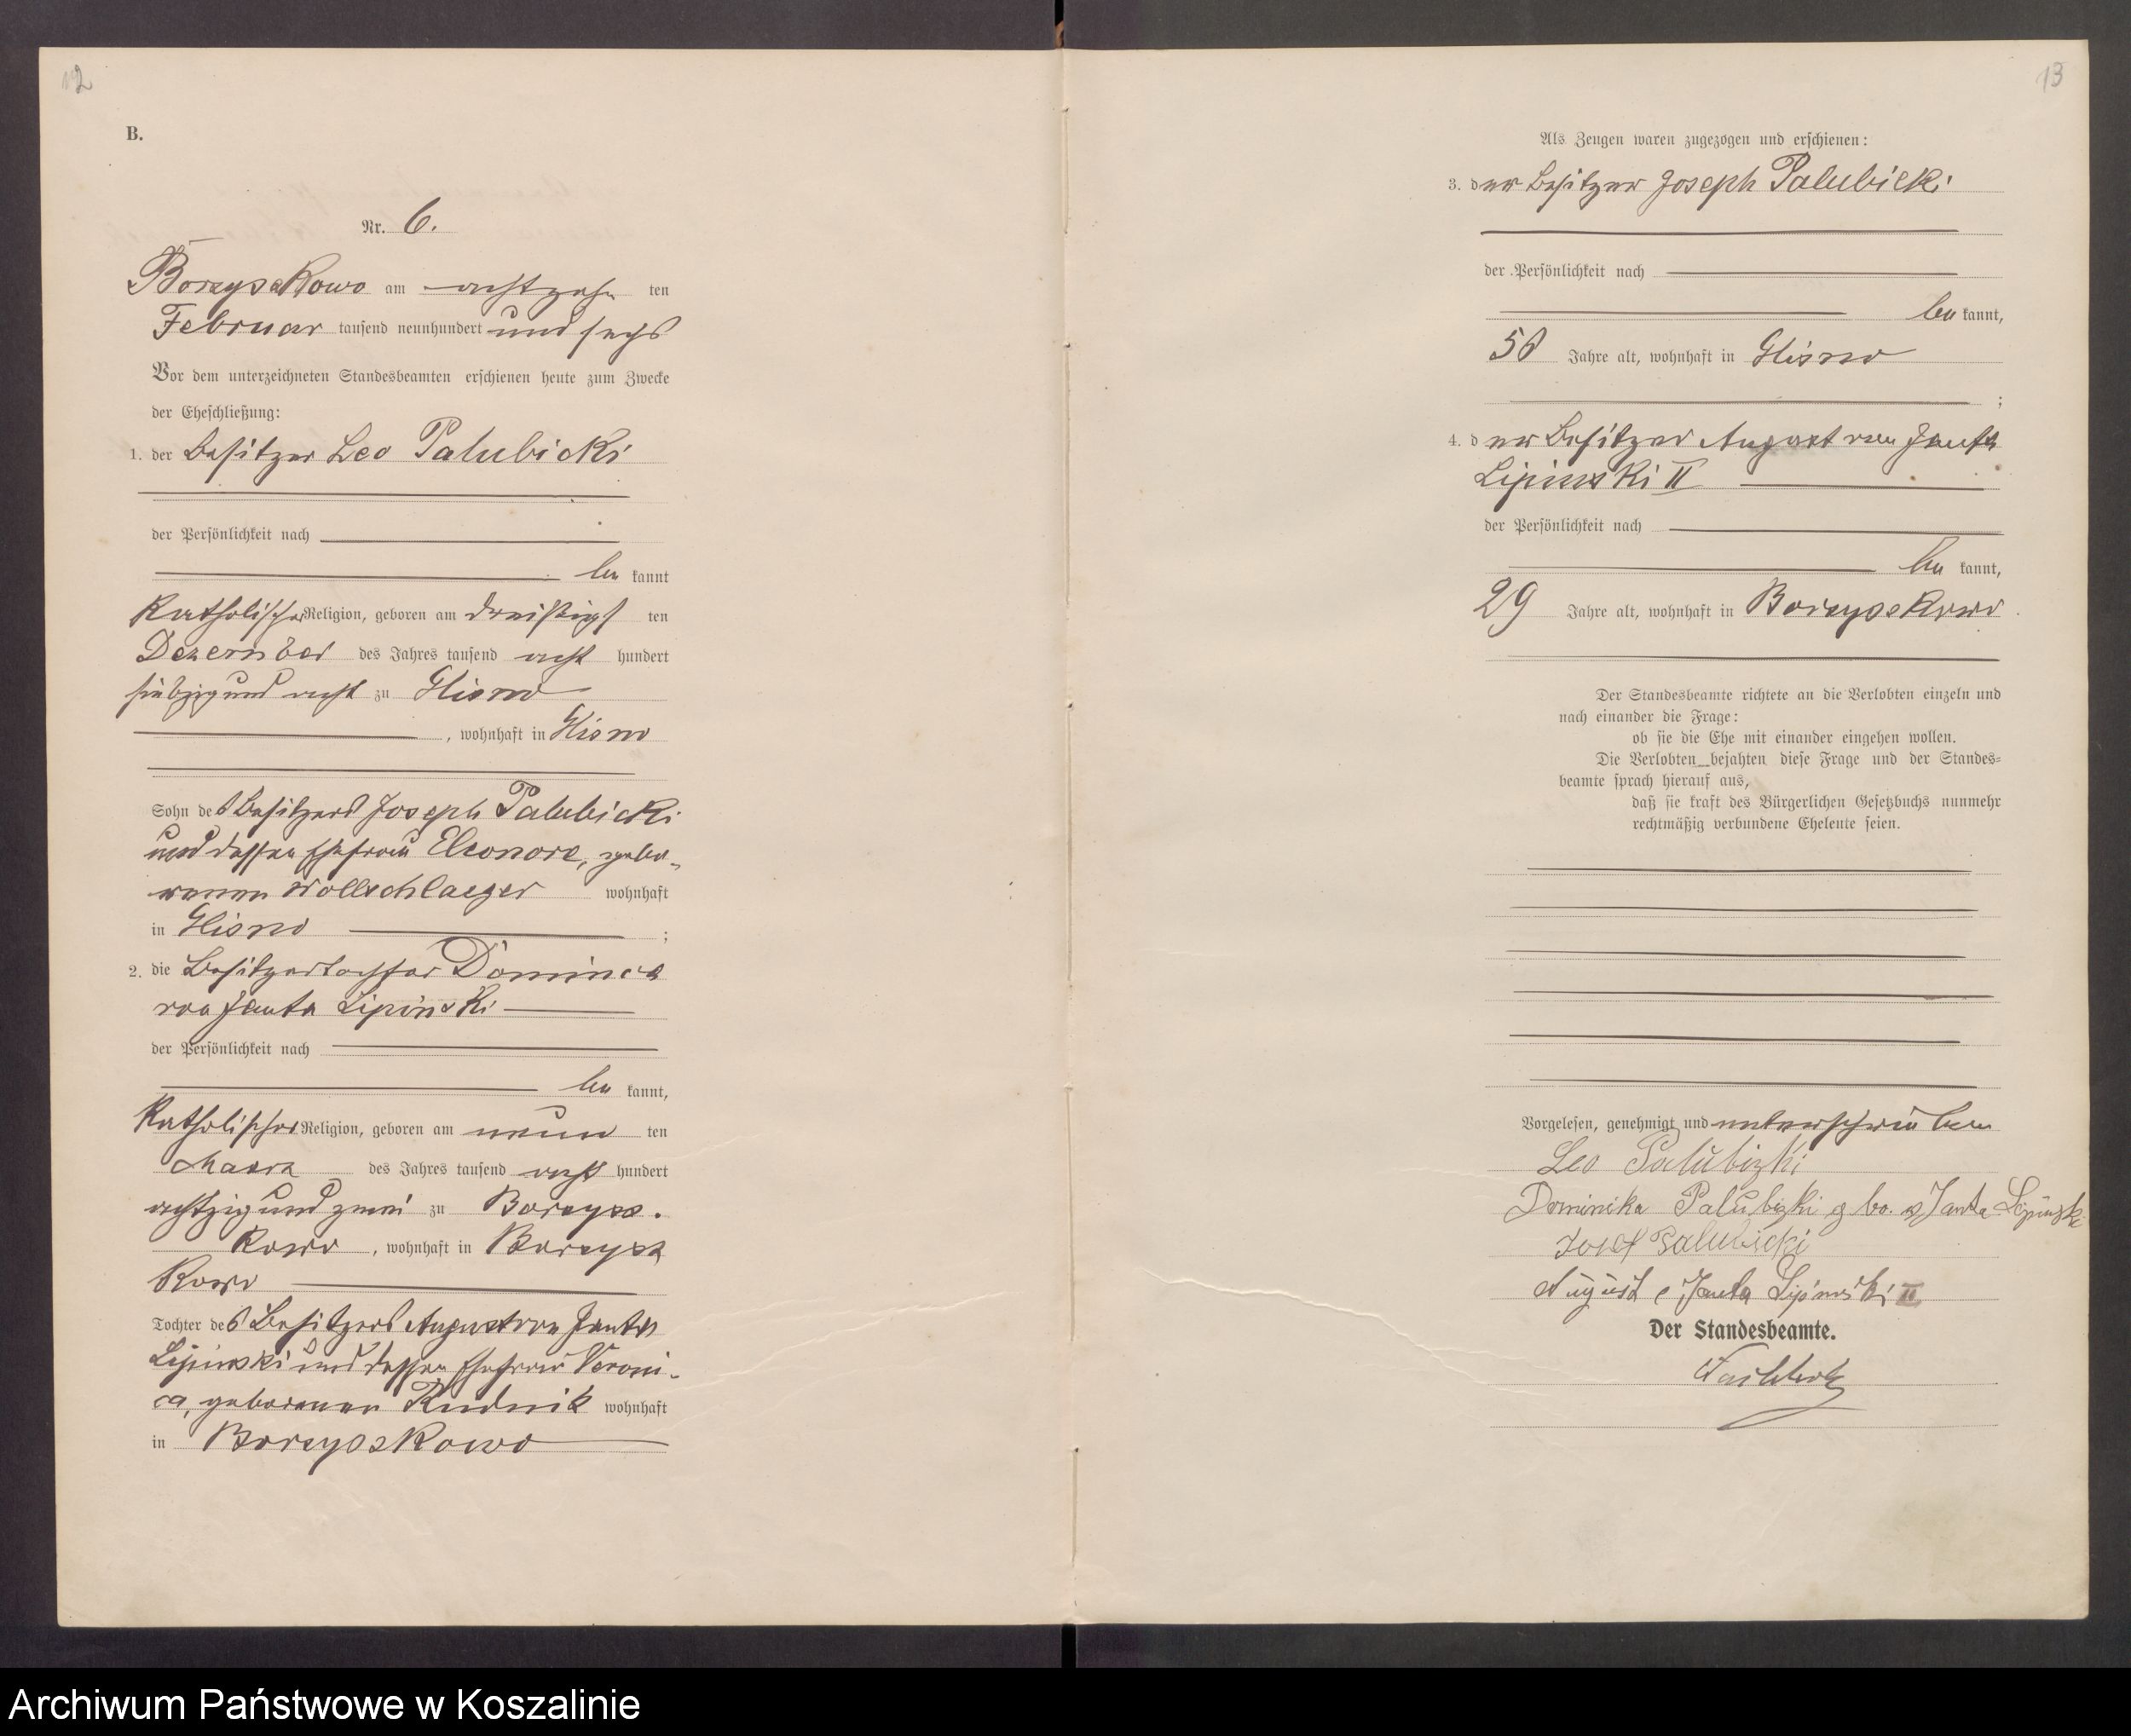 12
B.
Nr. 6.
Borzyskowo am achtzehn ten
Februar tausend neunhundert und sechs
Vor dem unterzeichneten Standesbeamten erschienen heute zum Zwecke
der Eheschließung:
1. der Besitzer Leo Palubicki
der Persönlichkeit nach
be kannt
Katholischer Religion, geboren am dreißigs ten
Dezember des Jahres tausend acht hundert
siebzig und acht zu Glisno
, wohnhaft in Glisno
Sohn des Besitzers Joseph Palubicki
und dessen Ehefrau Eleonore, gebo-
renen Wollschlaeger wohnhaft
in Glisno ;
2. die Besitzertochter Dominca
von Janta Lipinski
der Persönlichkeit nach
be kannt,
Katholischer Religion, geboren am neun ten
Maerz des Jahres tausend acht hundert
achtzig und zwei zu Borzys-
kowo , wohnhaft in Borzys
kowo
Tochter des Besitzers August von Janta
Lipinski und dessen Ehefrau Veroni-
ca, geborenen Rudnik wohnhaft
in Borzyskowo
13
Als Zeugen waren zugezogen und erschienen:
3. der Besitzer Joseph Palubicki
der Persönlichkeit nach
be kannt,
Jahre alt, wohnhaft in Glisno
;
4. der Besitzer August von Janta
Lipinski II
der Persönlichkeit nach
be kannt,
29 Jahre alt, wohnhaft in Borzyskowo
Der Standesbeamte richtete an die Verlobten einzeln und
nach einander die Frage:
ob sie die Ehe mit einander eingehen wollen.
Die Verlobten bejahten diese Frage und der Standes-
beamte sprach hierauf aus,
daß sie kraft des Bürgerlichen Gesetzbuchs nunmehr
rechtmäßig verbundene Eheleute seien.
Vorgelesen, genehmigt und unterschrieben
Leo Palubizki
Dominika Palubizki g bo. v Janta Lipinzki
Josef Palubicki
August v Janta Lipinski II
Der Standesbeamte.
Archiwum Państwowe w Koszalinie